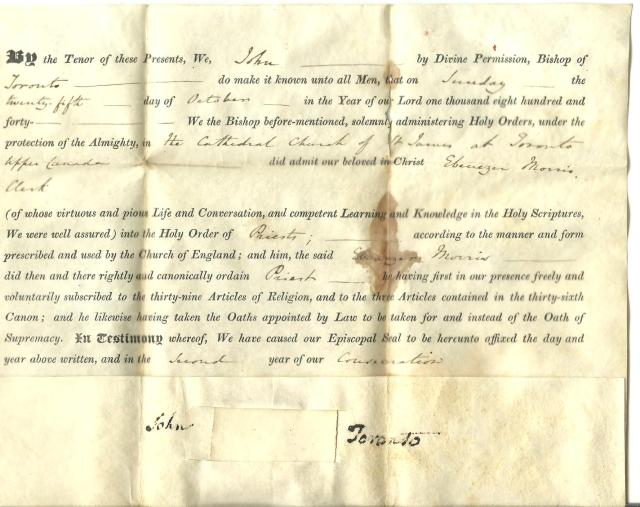 By the Tenor of these Presents, We, John by Divine Permission, Bishop of
Toronto do make it known unto all Men, that on Sunday the
twenty-fifth day of October in the Year of our Lord one thousand eight hundred and
forty- We the Bishop before-mentioned, solemnly administering Holy Orders, under the
protection of the Almighty, in the Cathedral Church of St James at Toronto
Upper Canada did admit our beloved in Christ Ebenezer Morris,
Clerk
(of whose virtuous and pious Life and Conversation, and competent Learning and Knowledge in the Holy Scriptures,
We were well assured) into the Holy Order of Priests; according to the manner and form
prescribed and used by the Church of England; and him, the said Ebenezer Morris
did then and there rightly and canonically ordain Priest he having first in our presence freely and
voluntarily subscribed to the thirty-nine Articles of Religion, and to the three Articles contained in the thirty-sixth
Canon; and he likewise having taken the Oaths appointed by Law to be taken for and instead of the Oath of
Supremacy. In Testimony whereof, We have caused our Episcopal Seal to be hereunto affixed the day and
year above written, and in the second year of our Consecration
John Toronto